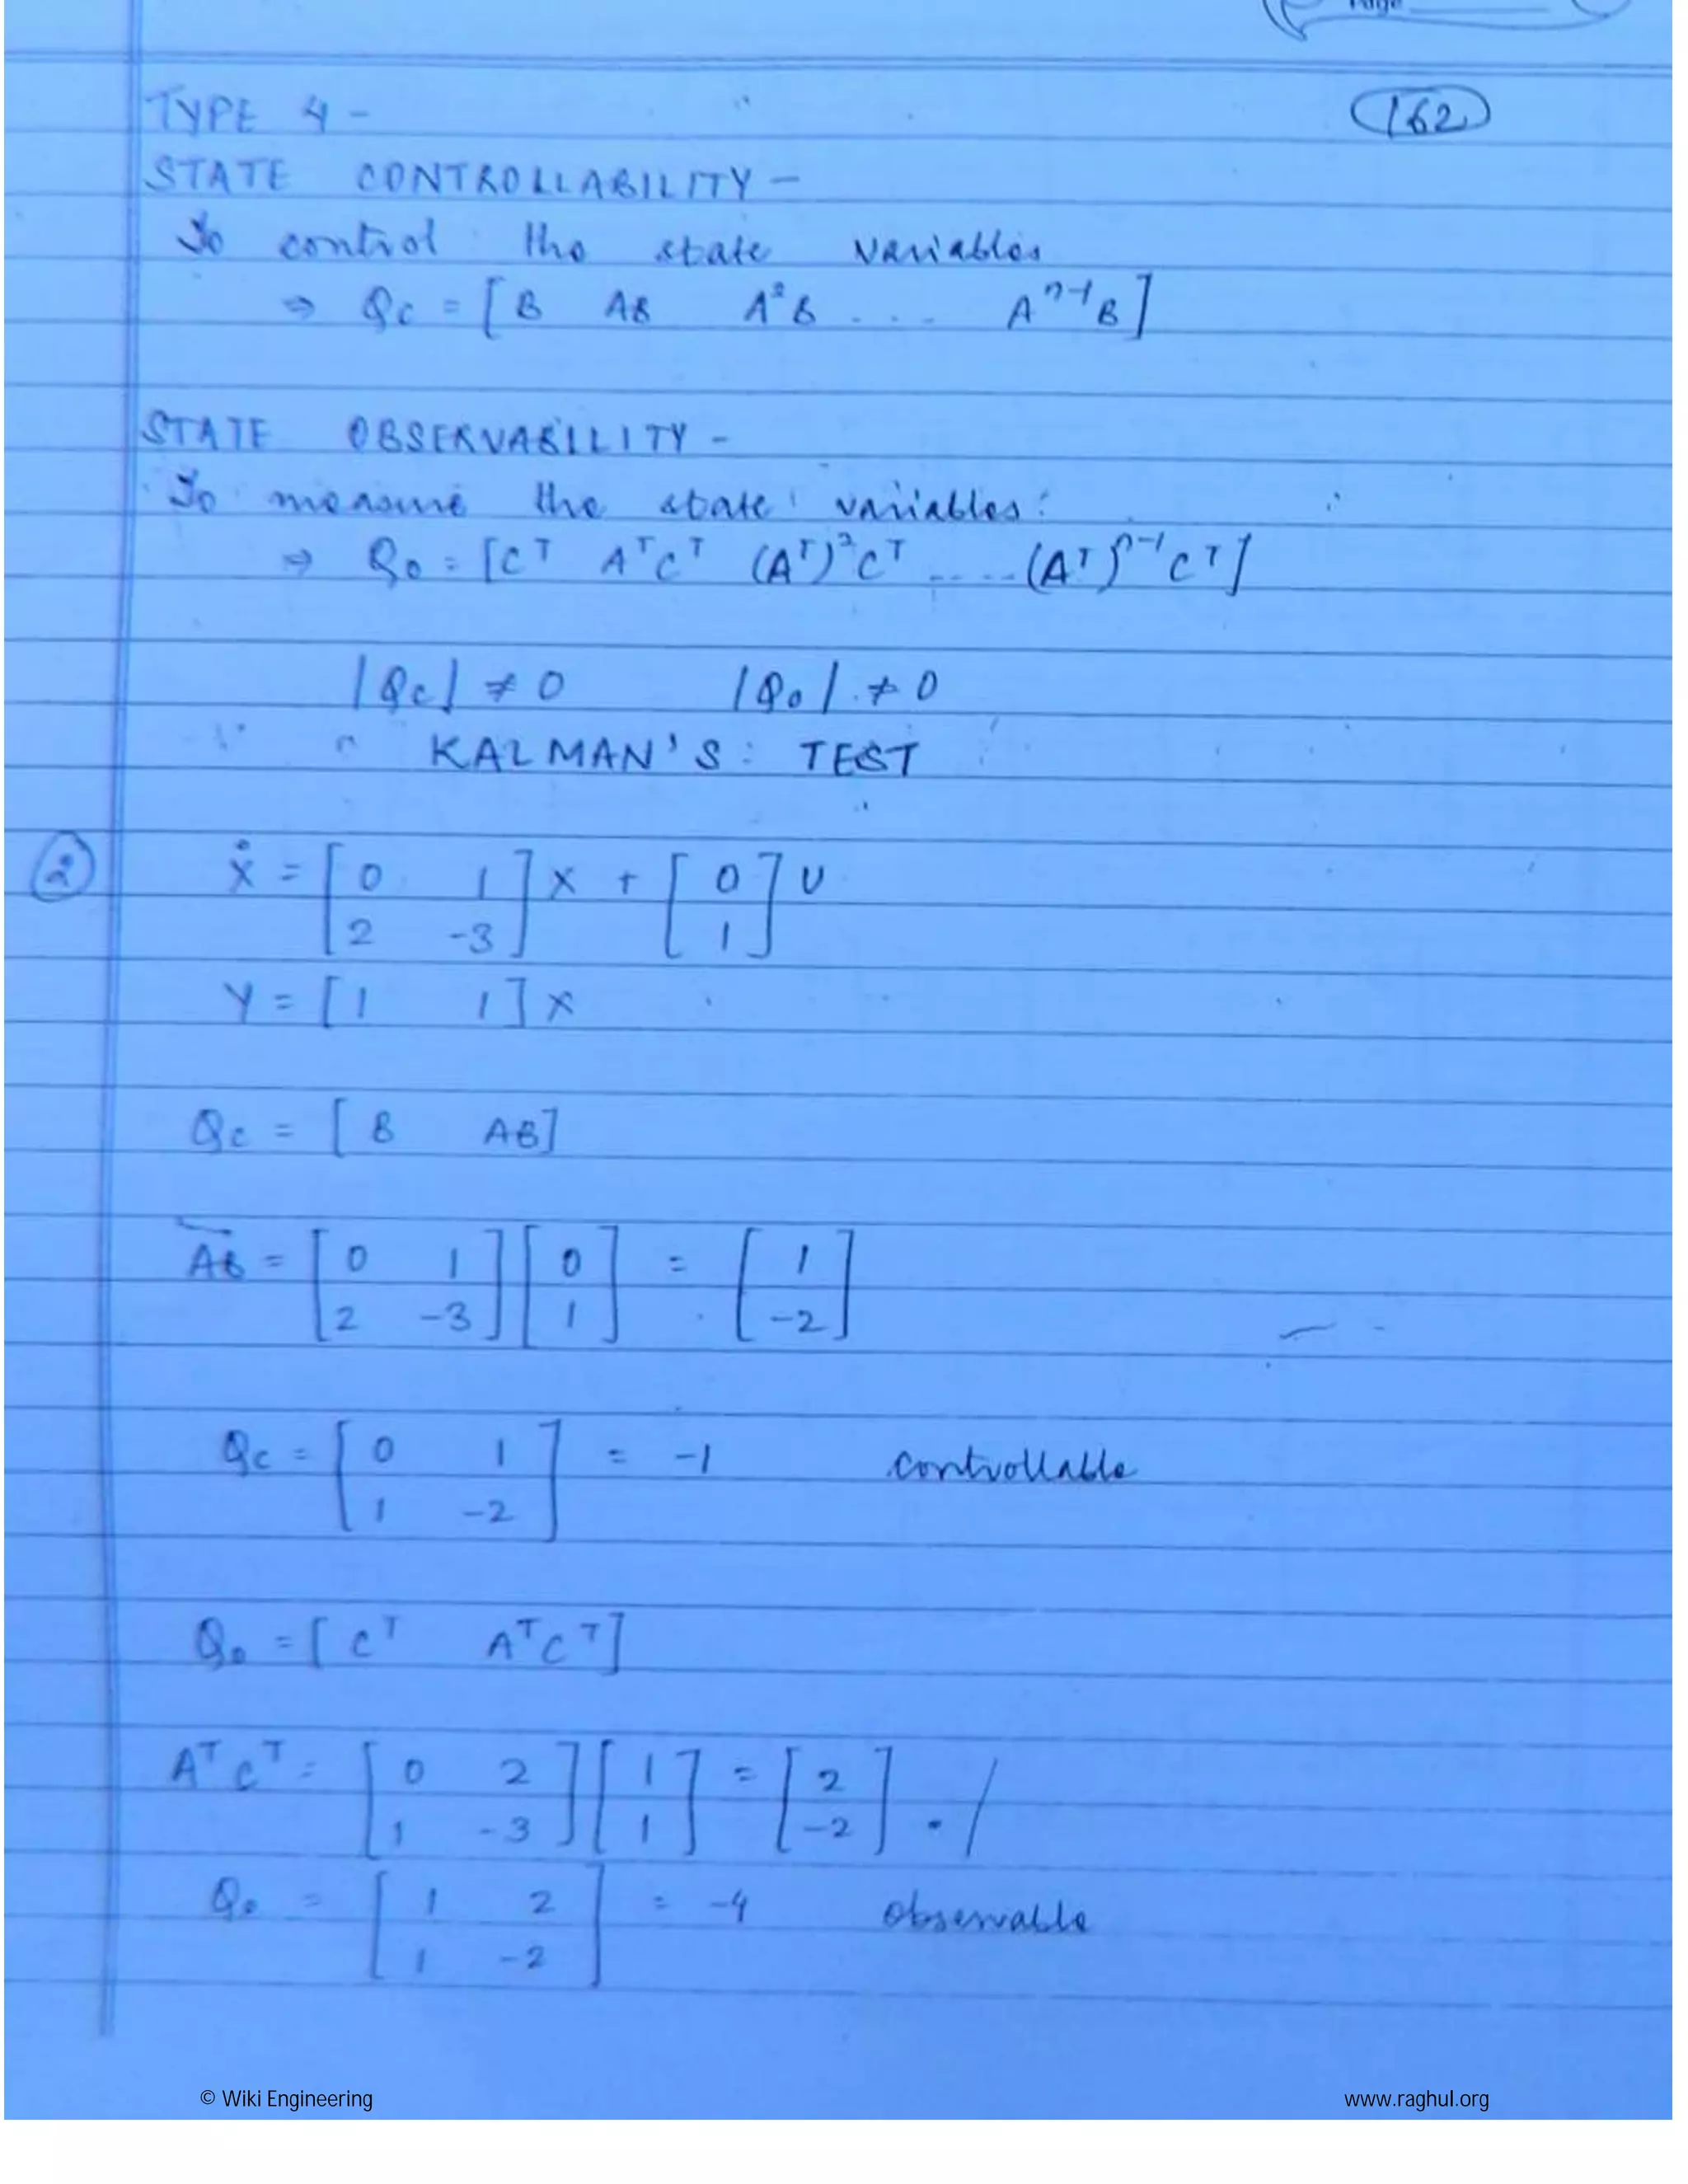 Page
TYPE 4 - (162)
STATE CONTROLLABILITY -
To control the state variables
⇒ Qc = [ B AB A²B ... Aⁿ⁻¹B ]
STATE OBSERVABILITY -
To measure the state variables:
⇒ Qo = [Cᵀ AᵀCᵀ (Aᵀ)²Cᵀ .... (Aᵀ)ⁿ⁻¹Cᵀ]
|Qc| ≠ 0 |Qo| ≠ 0
KALMAN'S: TEST
(2) Ẋ = [ 0 1 ] X + [ 0 ] U
[ 2 -3 ] [ 1 ]
Y = [ 1 1 ] X
Qc = [ B AB ]
AB = [ 0 1 ] [ 0 ] = [ 1 ]
[ 2 -3 ] [ 1 ] [ -2 ]
Qc = [ 0 1 ] = -1 controllable
[ 1 -2 ]
Qo = [ Cᵀ AᵀCᵀ ]
AᵀCᵀ = [ 0 2 ] [ 1 ] = [ 2 ]
[ 1 -3 ] [ 1 ] [ -2 ]
Qo = [ 1 2 ] = -4 observable
[ 1 -2 ]
© Wiki Engineering www.raghul.org